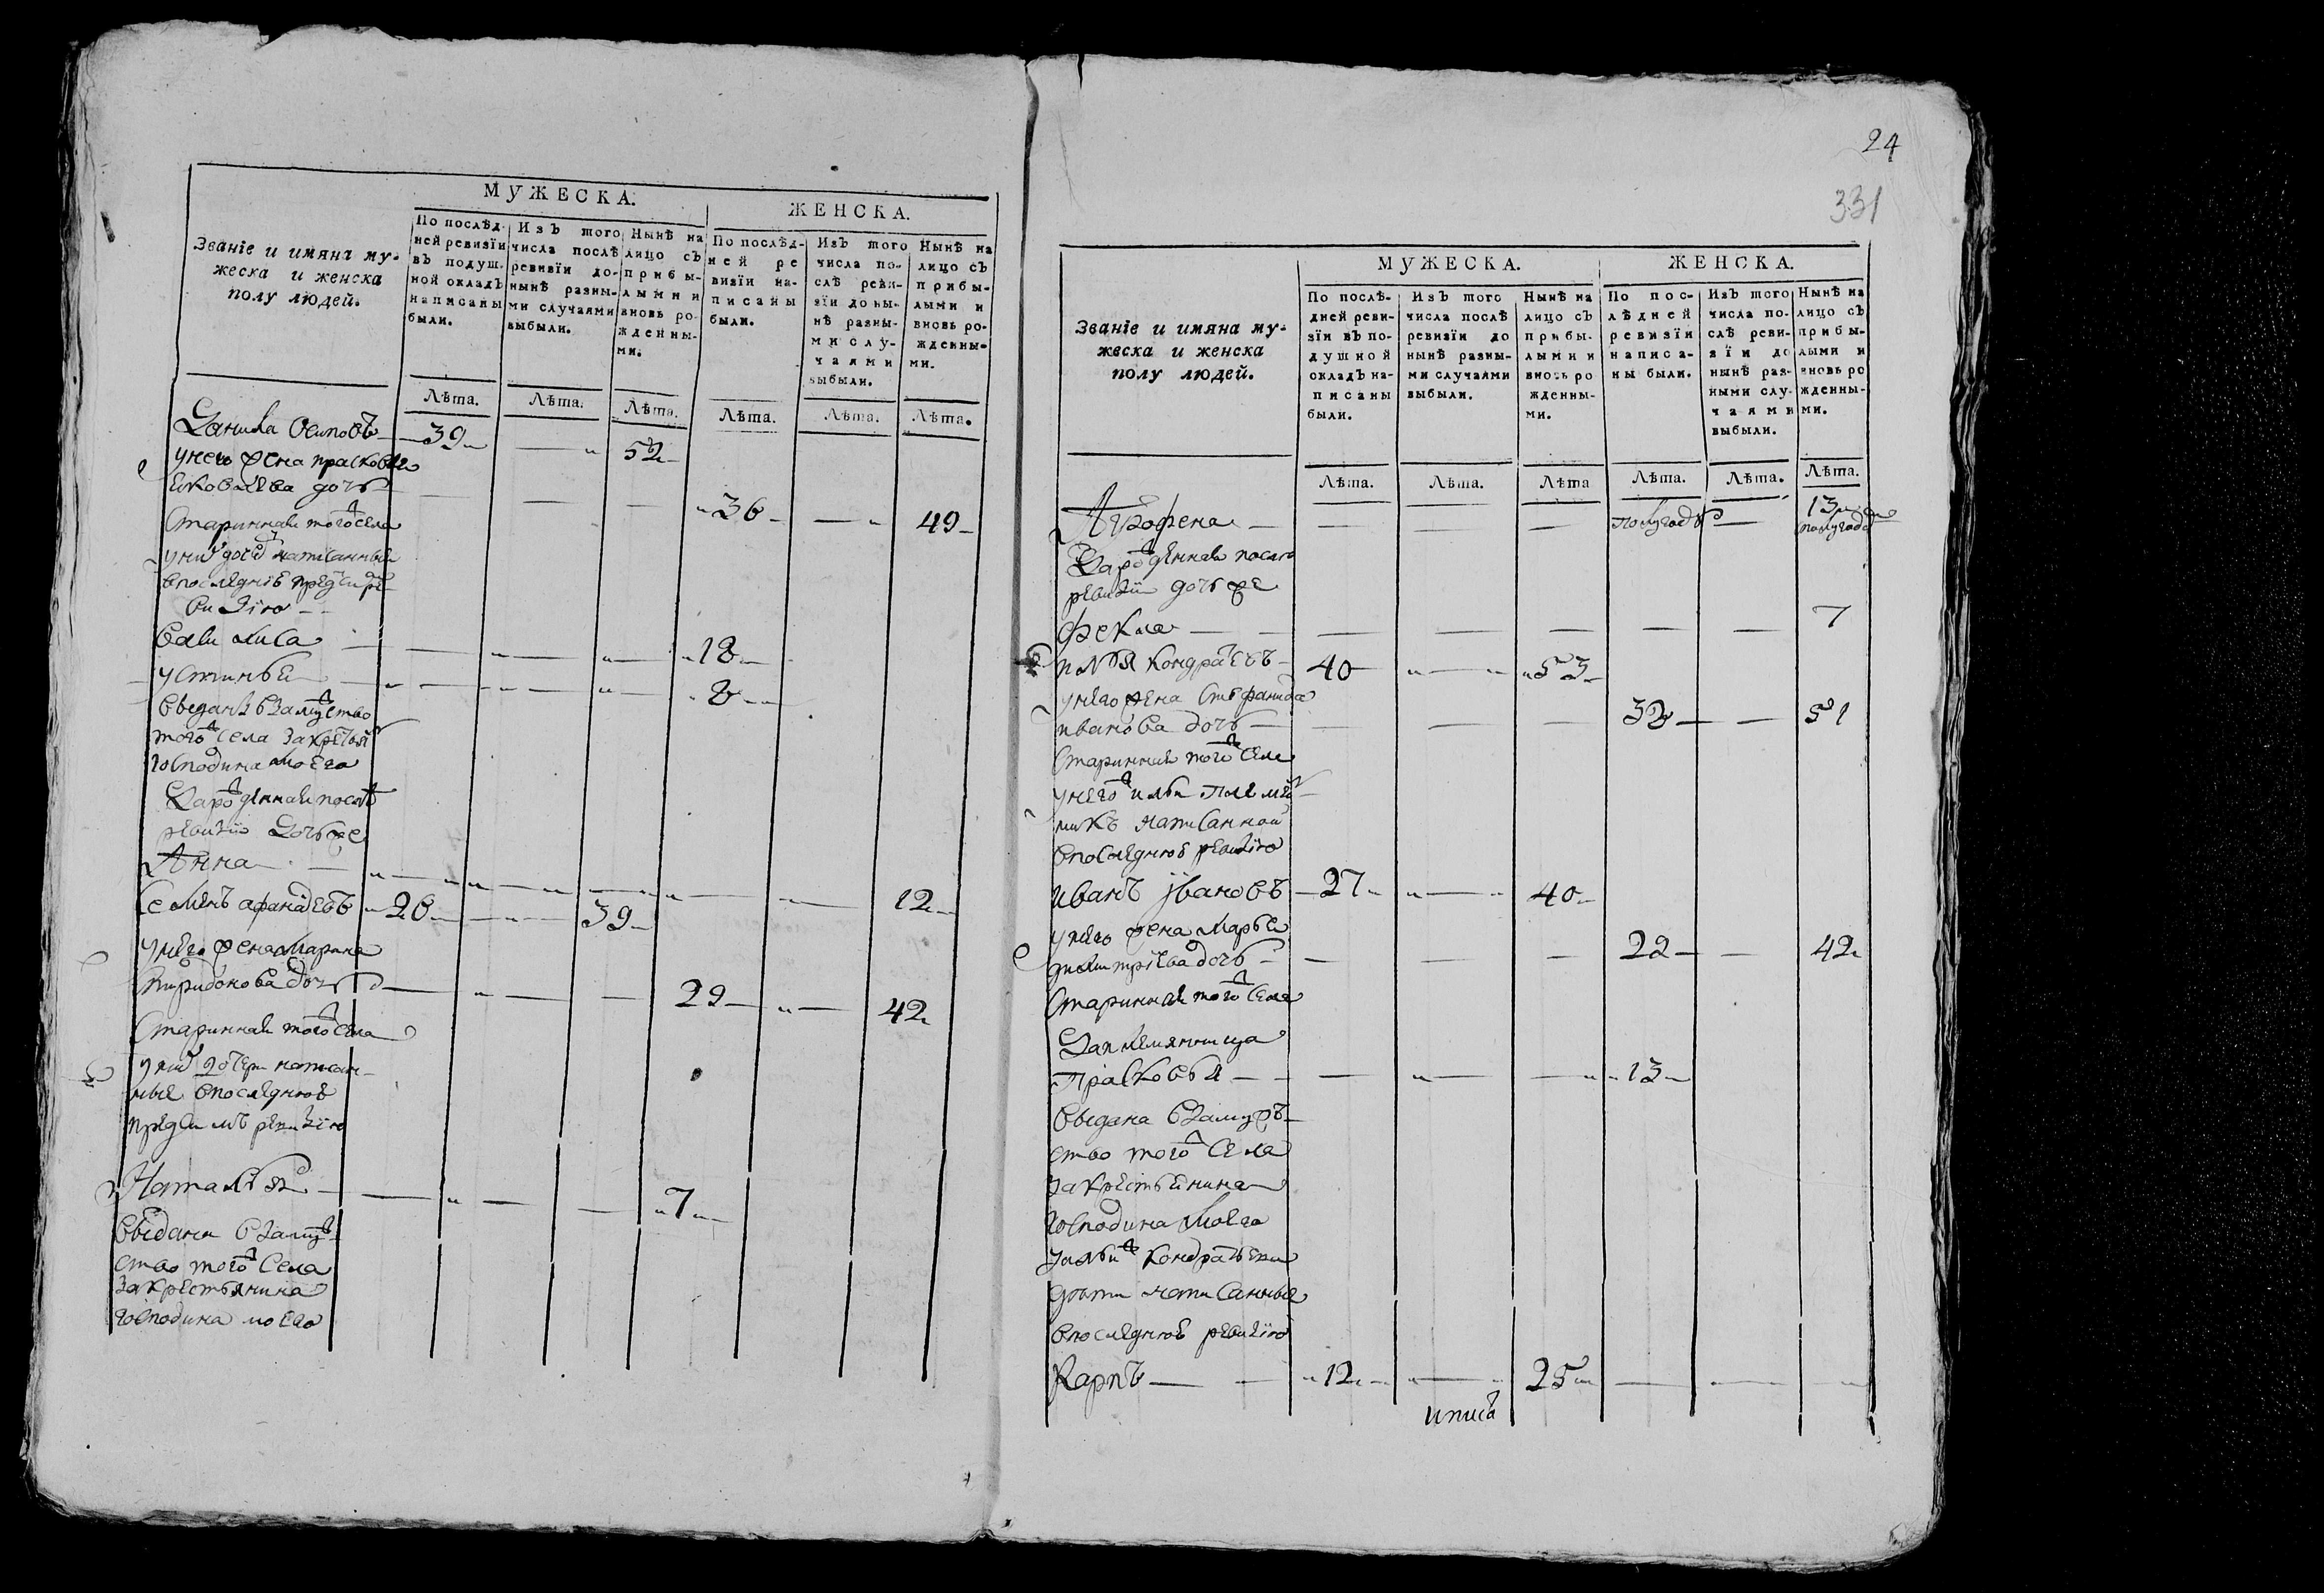 МУЖЕСКА.
ЖЕНСКА.
Званіе и имяна му-
жеска и женска
полу людей.
По послѣд-
ней ревизіи
въ подуш-
ной окладъ
написаны
были.
Изъ того
числа послѣ
ревизіи до-
нынѣ разны-
ми случаями
выбыли.
Нынѣ на
лицо съ
прибы-
лыми и
вновь ро-
жденны-
ми.
По послѣд-
ней ре
визіи на-
писаны
были.
Изъ того
числа по-
слѣ реви-
зіи до ны-
нѣ разны-
ми слу-
чаями
выбыли.
Нынѣ на
лицо съ
прибы-
лыми и
вновь ро-
жденны-
ми.
Лѣта. Лѣта. Лѣта. Лѣта. Лѣта. Лѣта.
Данила Осиповъ 39 52
у него жена прасковья
дочь 36 49
старинная того ж села
у них дочери написанные
в последнюю пред сим ре-
визiю
Василиса 18
устинья 8
выданы в замужство
того ж села за крестьян
господина моего
Да рожденная послѣ
ревизiи Дочь же
Анна 12
Семенъ афанасьевъ 26 39
у него жена Марина
спиридонова дочь 29 42
Старинная того ж села
у них дочери написан-
ные в последнюю
пред симъ ревизiю
Наталья 7
Выдана в замуж-
ство того ж Села
за крестьянина
господина моего
24
331
МУЖЕСКА.
ЖЕНСКА.
Званіе и имяна му-
жеска и женска
полу людей.
По послѣ-
дней реви-
зіи въ по-
душной
окладъ на-
писаны
были.
Изъ того
числа послѣ
ревизіи до
нынѣ разны-
ми случаями
выбыли.
Нынѣ на
лицо съ
прибы-
лыми и
вновь ро
жденны-
ми.
По пос-
лѣдней
ревизіи
написа-
ны были.
Изъ того
числа по-
слѣ реви-
зіи до
нынѣ раз-
ными слу-
чаями
выбыли.
Нынѣ на
лицо съ
прибы-
лыми и
вновь ро
жденны-
ми.
Лѣта. Лѣта. Лѣта Лѣта. Лѣта. Лѣта.
Аграфена полугоду 13
полугода
Да рожденная после
ревизiи дочь же
Фекла 7
илья кондратьевъ 40 53
у него жена Степанида
иванова дочь 38 51
Старинная того ж Села
у него ж ильи племян-
никъ написанной
в последнюю ревизiю
иванъ iвановъ 27 40
у него жена Марья
дмитрiева дочь 22 42
Старинная того ж Села
Да племянница
Прасковья 13
Выдана в замуж-
ство того ж Села
за крестьянина
господина моего
у ильи ж кондратьева
дети написанные
в последнюю ревизiю
Карпъ 12 25